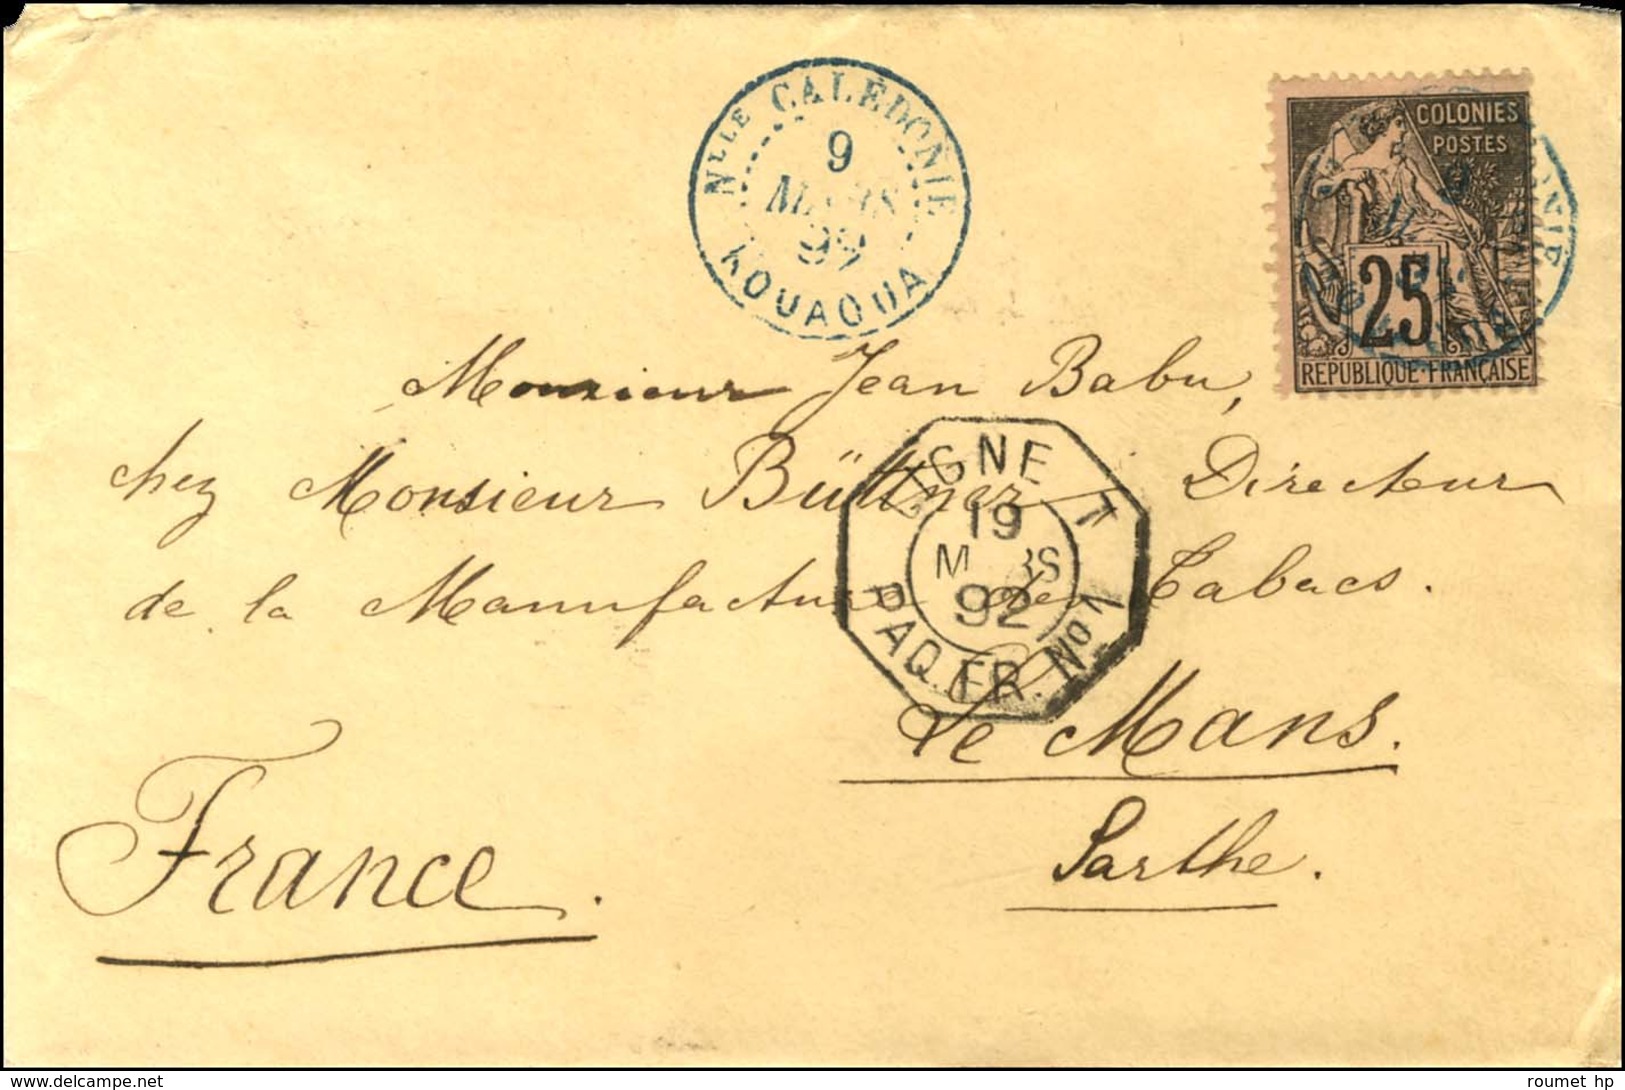 Nlle CALÉDONIE
9
MARS
92
KOUAOUA
COLONIES
POSTES
25
REPUBLIQUE FRANÇAISE
Monsieur Jean Babu,
chez Monsieur Büttner Directeur
de la Manufacture des Tabacs.
LIGNE T
19
MARS
92
PAQ. FR. No 1
Le Mans.
Sarthe.
France.
roumet hp